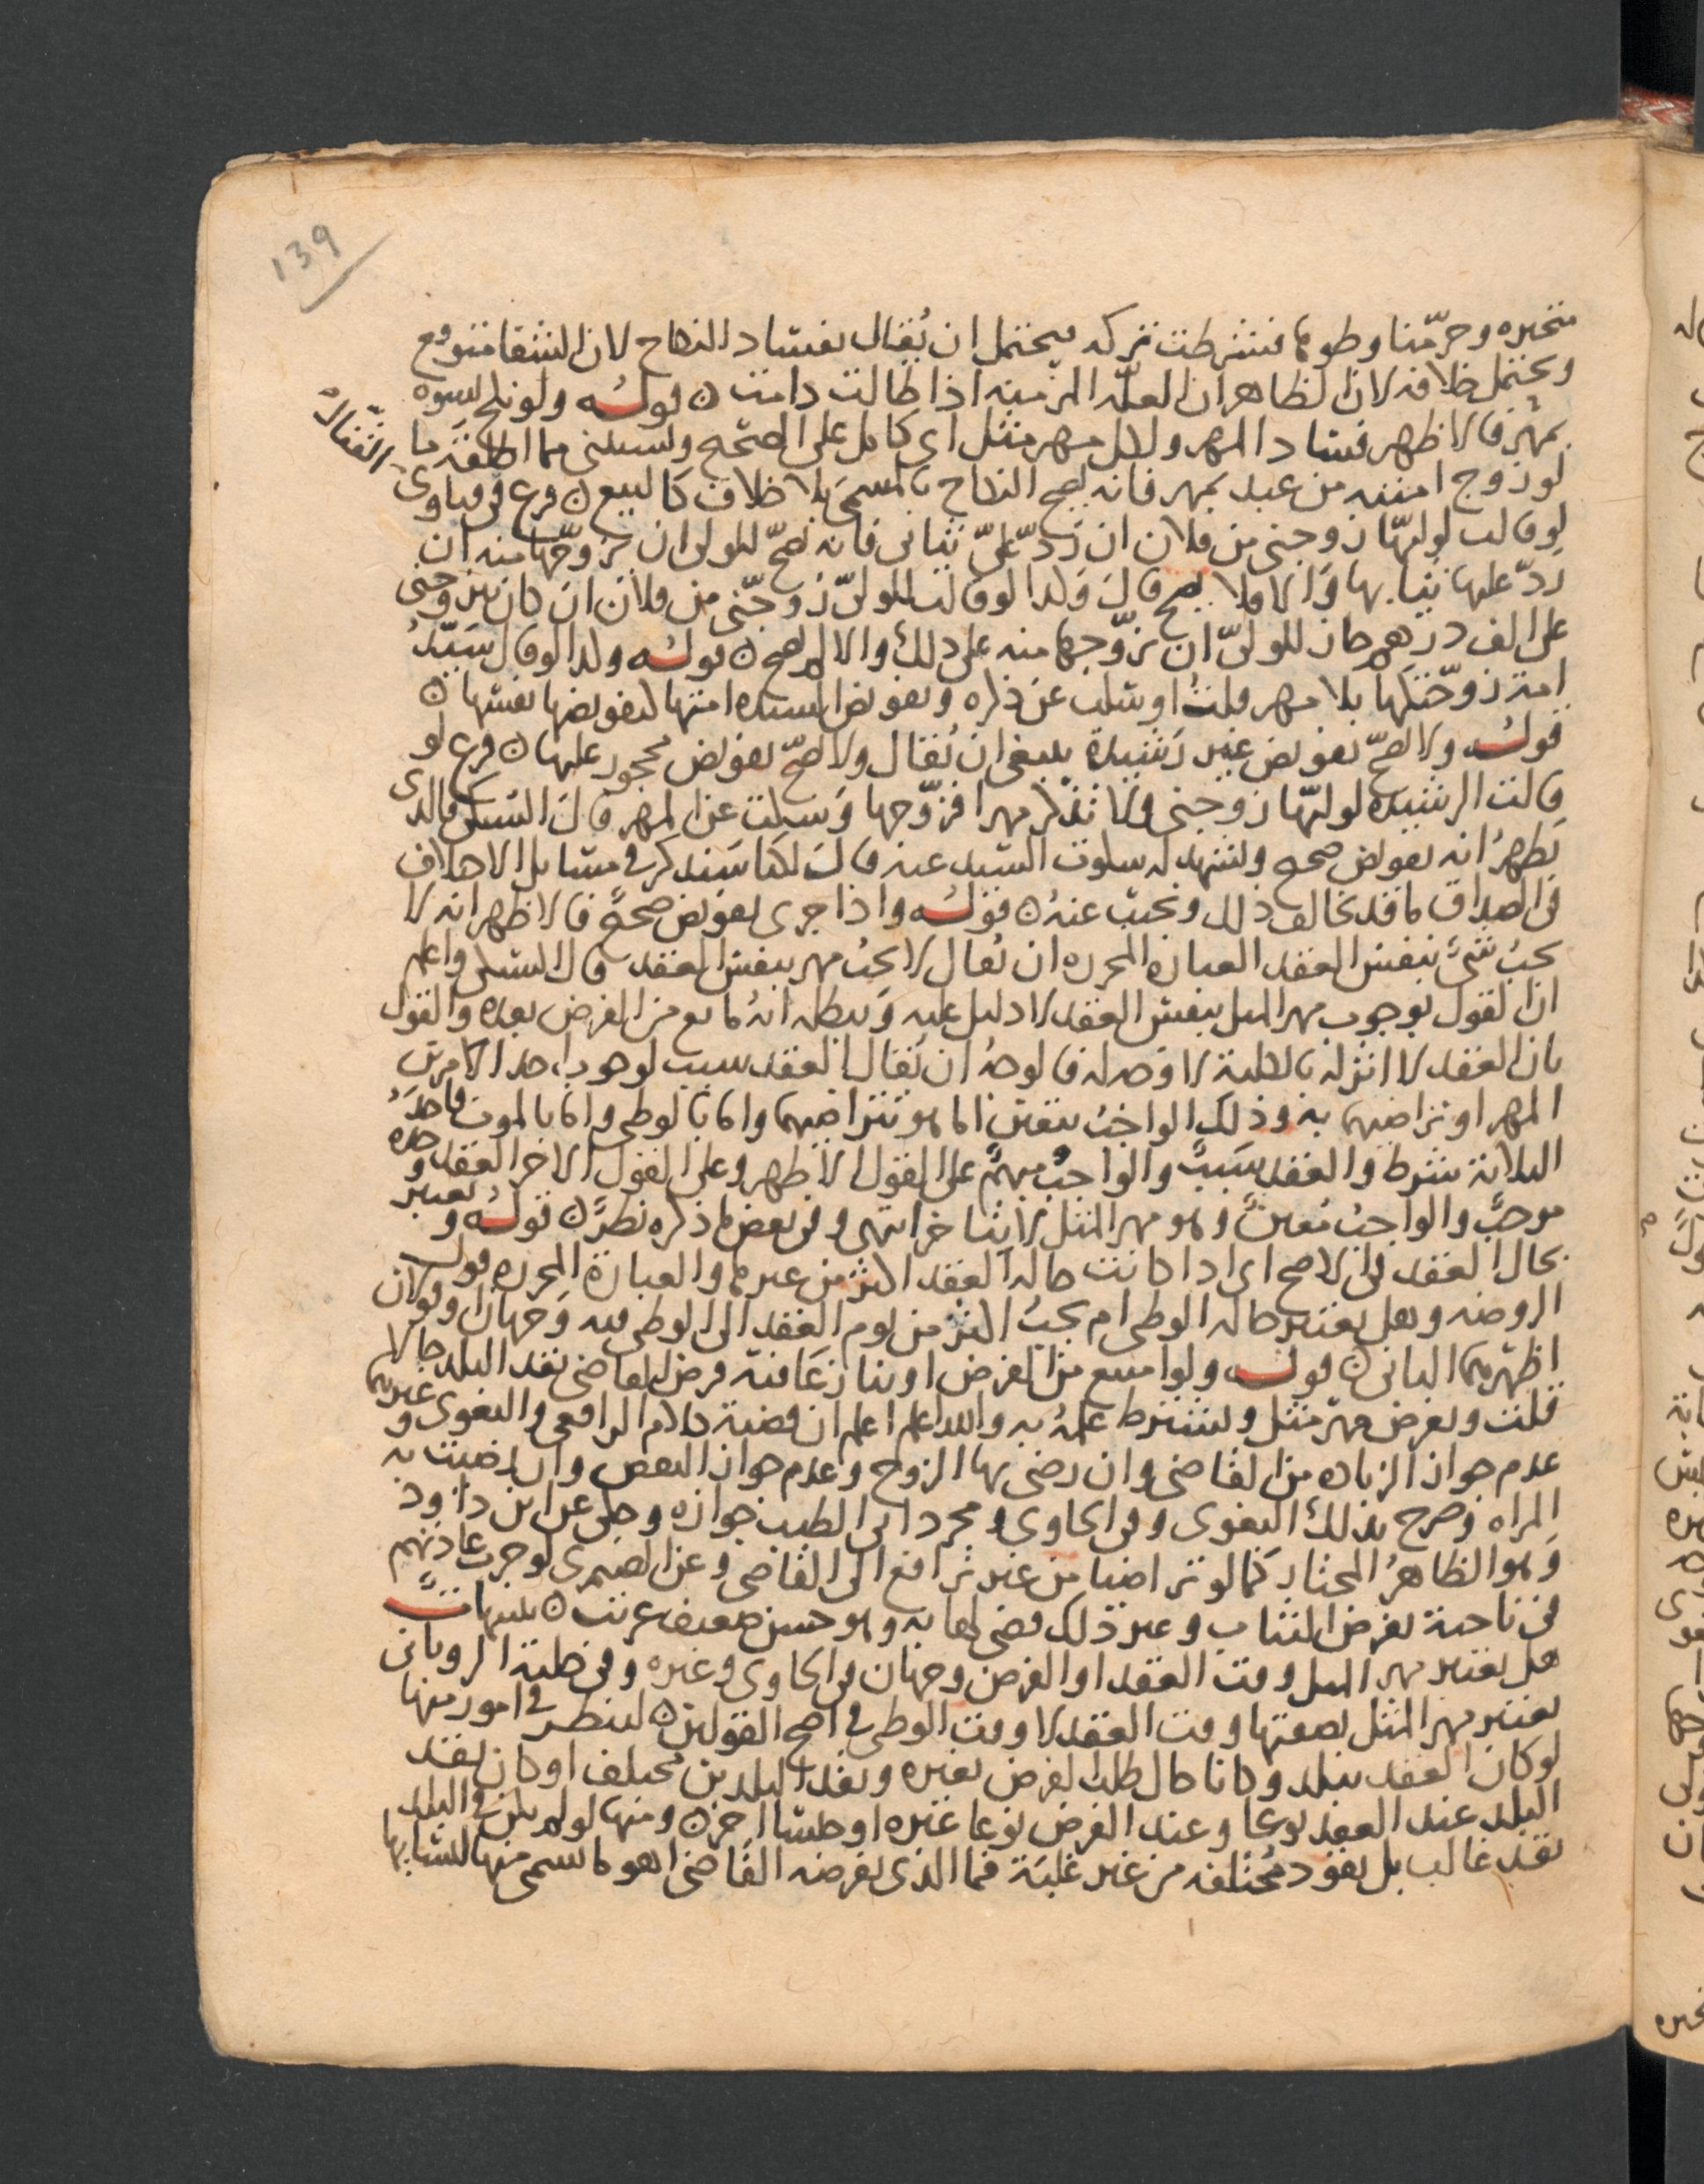 139
متحيره وحرمنا وطوها فشرطت تركه فيحتمل ان يقال بفساد النكاح لان الشفا متوقع
ويحتمل خلافه لان الظاهر ان العلة المزمنه اذا طالت دامت ۞ قوله ولو نكح نسوه
بمهر فالاظهر فساد المهر ولكل مهر مثل اى كامل على الصحيح ويستثنى مما اطلقه ما
لو زوج امتيه من عبد بمهر فانه يصح النكاح بالمسمى بلا خلاف كالبيع ۞ فرع فى فتاوى
القفال
لو قالت لوليها زوجنى من فلان ان رد على ثيابى فانه يصح للولى ان يزوجها منه ان
رد عليها ثيابها والا فلا يصح قال وكذا لو قالت للولى زوجنى من فلان ان كان يتزوجنى
على الف درهم جاز للولى ان يزوجها منه على ذلك والا لم يصح ۞ قوله وكذا لو قال سيد
امة زوجتكها بلا مهر قلت او سكت عن ذكره وتفويض السيده امتها كتفويضها نفسها ۞
قوله ولا يصح تفويض غير رشيدة ينبغى ان يقال ولا يصح تفويض محجور عليها ۞ فرع لو
قالت الرشيده لوليها زوجنى ولا تذكر مهرا فزوجها وسكت عن المهر قال السبكى فالذى
يظهر انه تفويض صحيح ويشهد له سكوت السيد عنه قال لكنا سنذكر فى مسايل الاختلاف
فى الصداق ما قد يخالف ذلك ونجيب عنه ۞ قوله واذا جرى تفويض صحيح فالاظهر انه لا
يجب شئ بنفس العقد العباره المحرره ان يقال لا يجب مهر بنفس العقد قال السبكى واعلم
ان القول بوجوب مهر المثل بنفس العقد لا دليل عليه ويبطله انه مانع من الفرض بعده والقول
بان العقد لا اثر له بالكلية لا وجه له فالوجه ان يقال العقد سبب لوجوب احد الامرين
المهر او تراضيهما به وذلك الواجب يتعين اما هو بتراضيهما واما بالوطى واما بالموت فاحد
الثلاثة شرط والعقد سبب والواجب مبهم على القول الاظهر وعلى القول الاخر العقد وحده
موجب والواجب معين وهو مهر المثل لا يتاخر انتهى وفى بعض ما ذكره نظر ۞ قوله ويعتبر
بحال العقد فى الاصح اى اذا كانت حاله العقد اكثر من غيرها والعبارة المحرره قول
الروضه وهل يعتبر حاله الوطى ام يجب اكثر من يوم العقد الى الوطى فيه وجهان او قولان
اظهرهما الثانى ۞ قوله ولو امتنع من الفرض او تنازعا فيه فرض القاضى نقد البلد حالا
قلت ويفرض مهر مثل ويشترط علمه به والله اعلم اعلم ان قضية كلام الرافعى والبغوى وغيرهما
عدم جواز الزياده من القاضى وان رضى بها الزوج وعدم جواز النقص وان رضيت به
المراه وصرح بذلك البغوى وفى الحاوى ومجرد ابى الطيب جوازه وحكى عن ابن داوود
وهو الظاهر المختار كما لو تراضيا من غير ترافع الى القاضى وعن الصيمرى لو جرت عادتهم
فى ناحية بفرض الثياب وغير ذلك قضى لها به وهو حسن ضعيف غريب ۞ تنبيهات
هل يعتبر مهر المثل وقت العقد او الفرض وجهان فى الحاوى وغيره وفى حلية الرويانى
يعتبر مهر المثل بصفتها وقت العقد لا وقت الوطى فى اصح القولين ۞ لينظر فى امور منها
لو كان العقد ببلد وكانا حال طلب الفرض بغيره ونقد البلدين مختلف او كان نقد
البلد عند العقد نوعا وعند الفرض نوعا غيره او جنسا اخر ۞ ومنها لو لم يكن فى البلد
نقد غالب بل نقود مختلفه من غير غلبة فما الذى يفرضه القاضى اهو ما سمى منها لنسايها